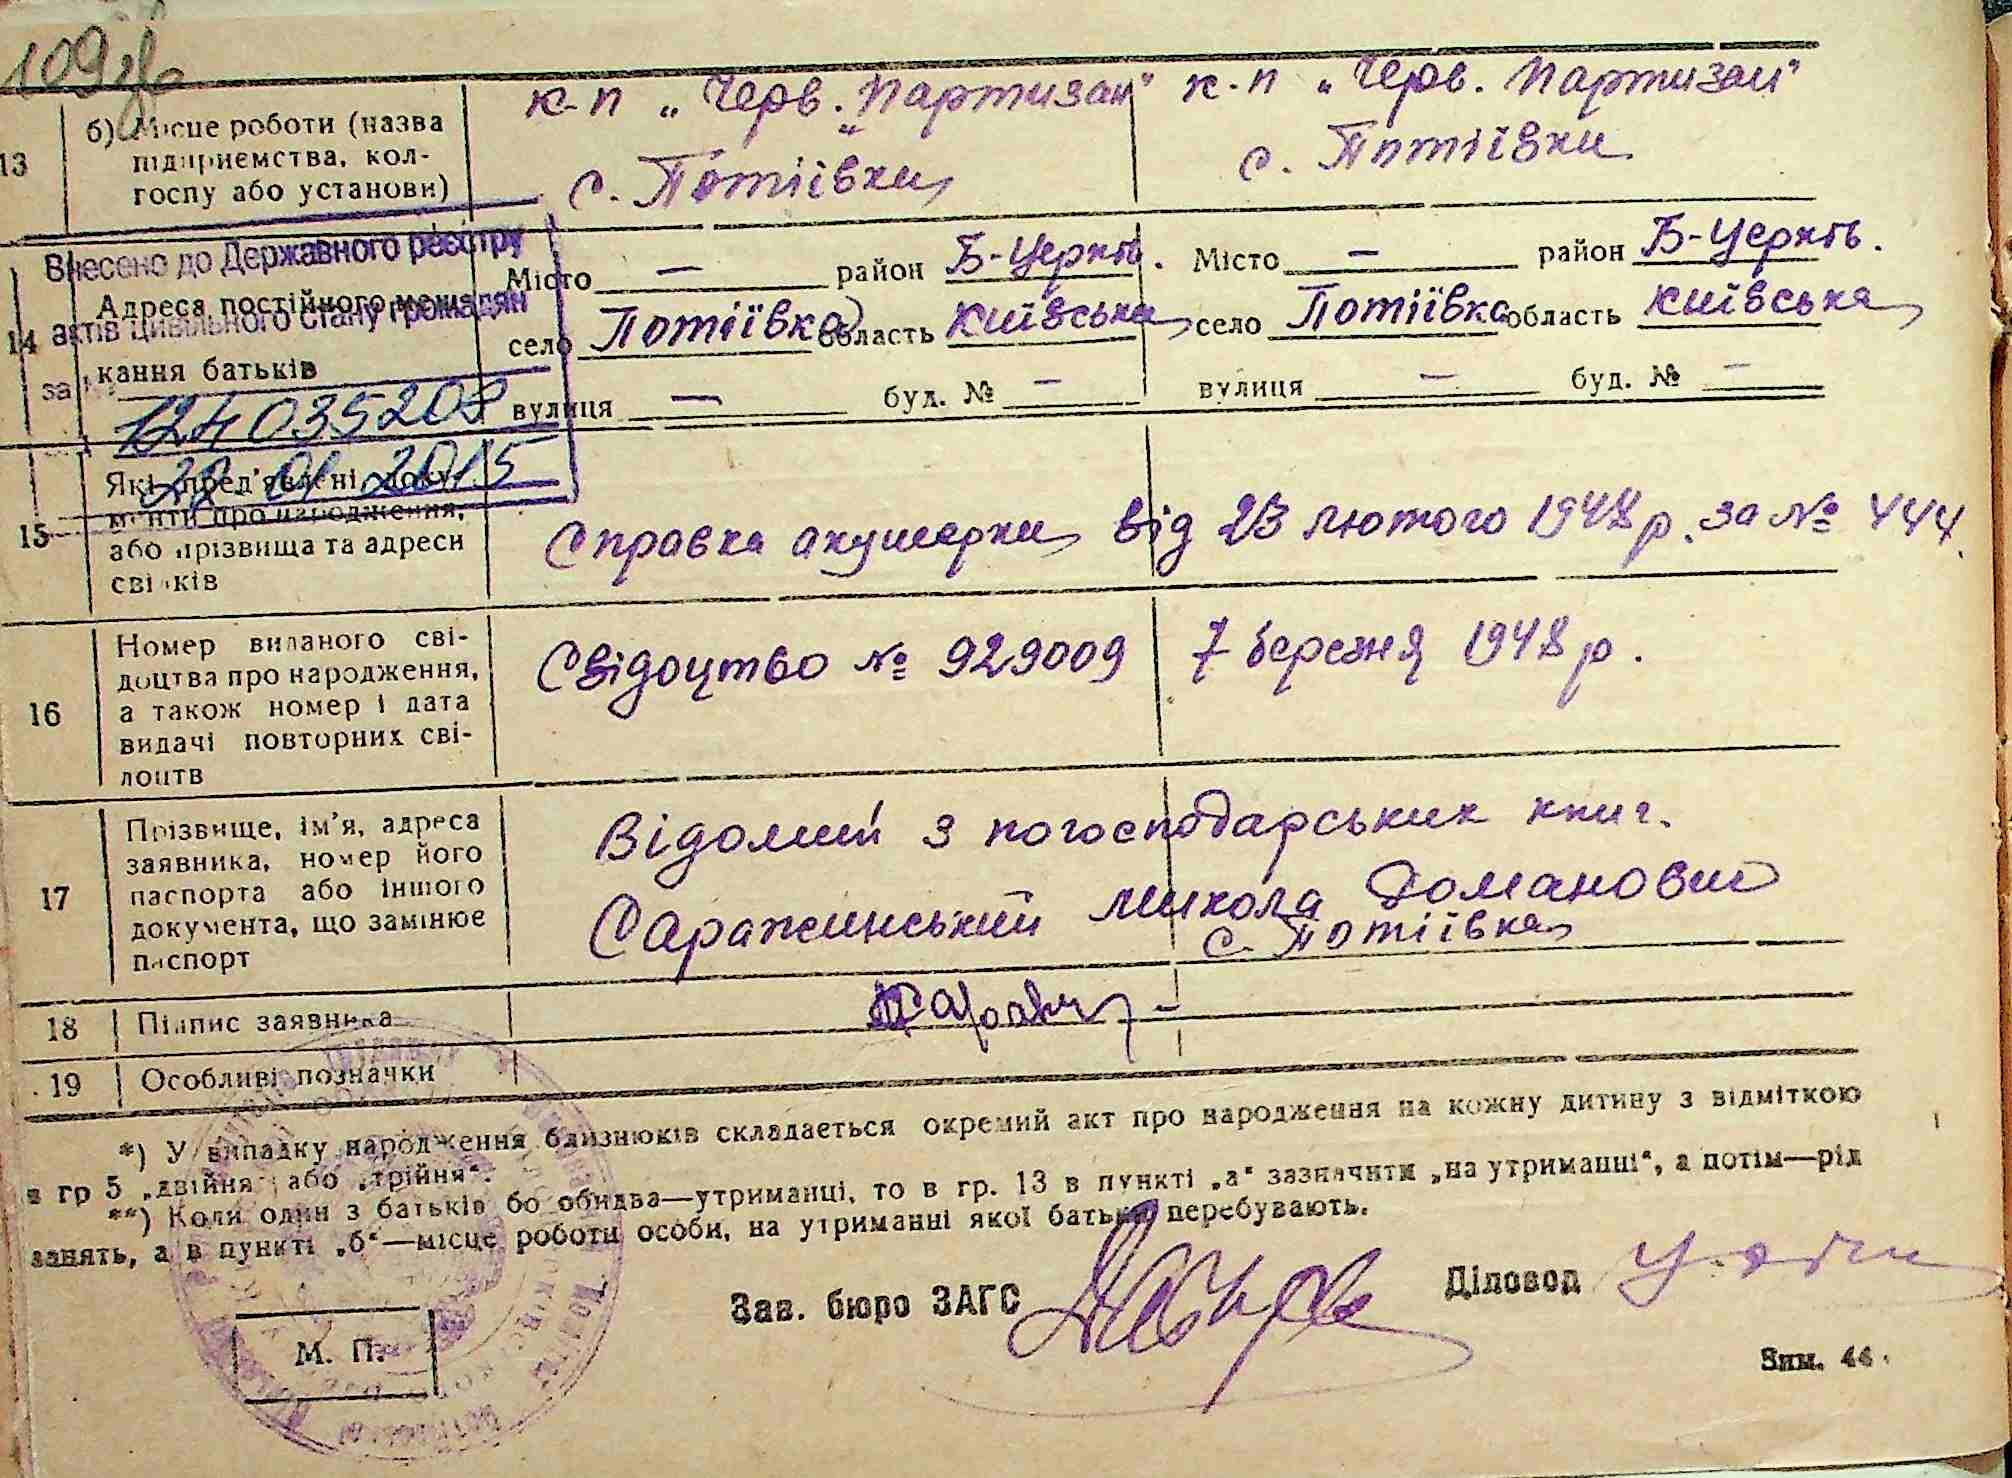 109
13 б) Місце роботи (назва підприємства, колгоспу або установи)
к-п „Черв. Партизан" к-п „Черв. Партизан"
с. Потіївки с. Потіївки
Внесено до Державного реєстру
актів цивільного стану громадян
за №
124035209
2015
14 Адреса постійного мешкання батьків
Місто — район Б-Церків. Місто — район Б-Церків.
село Потіївка область Київська село Потіївка область Київська
вулиця — буд. № — вулиця — буд. № —
15 Які пред'явлені документи про народження, або прізвища та адреси свідків
Справка акушерки від 23 лютого 1948 р. за № 444.
16 Номер виданого свідоцтва про народження, а також номер і дата видачі повторних свідоцтв
Свідоцтво № 929009 7 березня 1948 р.
17 Прізвище, ім'я, адреса заявника, номер його паспорта або іншого документа, що замінює паспорт
Відомий з погосподарських книг.
Саражинський Микола Доманович
с. Потіївка
18 Підпис заявника
19 Особливі позначки
*) У випадку народження близнюків складається окремий акт про народження на кожну дитину з відміткою
в гр 5 „двійня" або „трійня".
**) Коли один з батьків бо обидва—утриманці, то в гр. 13 в пункті „а" зазначити „на утриманні", а потім—рід
занять, а в пункті „б"—місце роботи особи, на утриманні якої батьки перебувають.
Зав. бюро ЗАГС Діловод
М. П.
Зим. 44